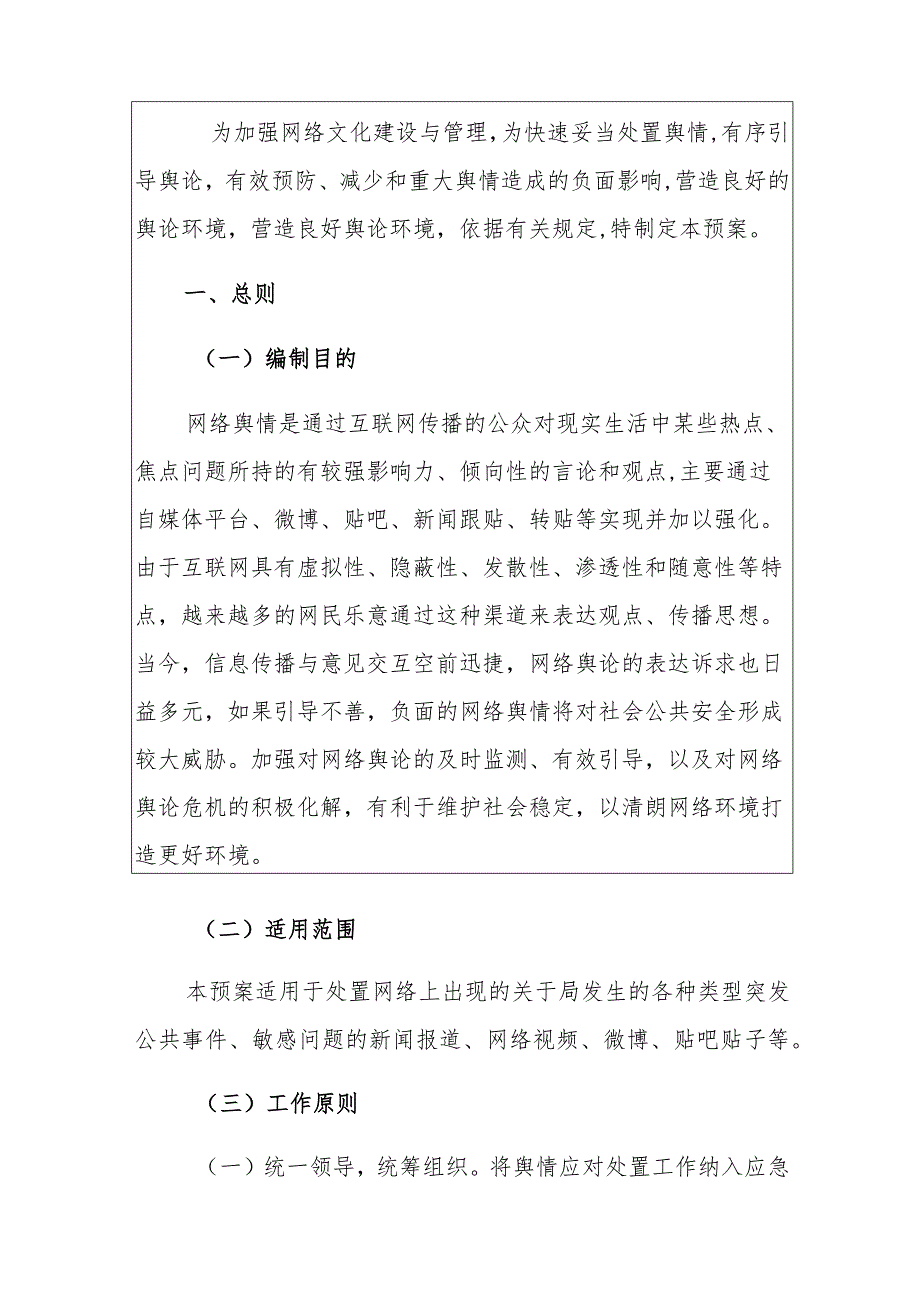 为加强网络文化建设与管理,为快速妥当处置舆情,有序引
导舆论，有效预防、减少和重大舆情造成的负面影响,营造良好的
舆论环境，营造良好舆论环境，依据有关规定,特制定本预案。
一、总则
（一）编制目的
网络舆情是通过互联网传播的公众对现实生活中某些热点、
焦点问题所持的有较强影响力、倾向性的言论和观点,主要通过
自媒体平台、微博、贴吧、新闻跟贴、转贴等实现并加以强化。
由于互联网具有虚拟性、隐蔽性、发散性、渗透性和随意性等特
点，越来越多的网民乐意通过这种渠道来表达观点、传播思想。
当今，信息传播与意见交互空前迅捷，网络舆论的表达诉求也日
益多元，如果引导不善，负面的网络舆情将对社会公共安全形成
较大威胁。加强对网络舆论的及时监测、有效引导，以及对网络
舆论危机的积极化解，有利于维护社会稳定，以清朗网络环境打
造更好环境。
（二）适用范围
本预案适用于处置网络上出现的关于局发生的各种类型突发
公共事件、敏感问题的新闻报道、网络视频、微博、贴吧贴子等。
（三）工作原则
（一）统一领导，统筹组织。将舆情应对处置工作纳入应急